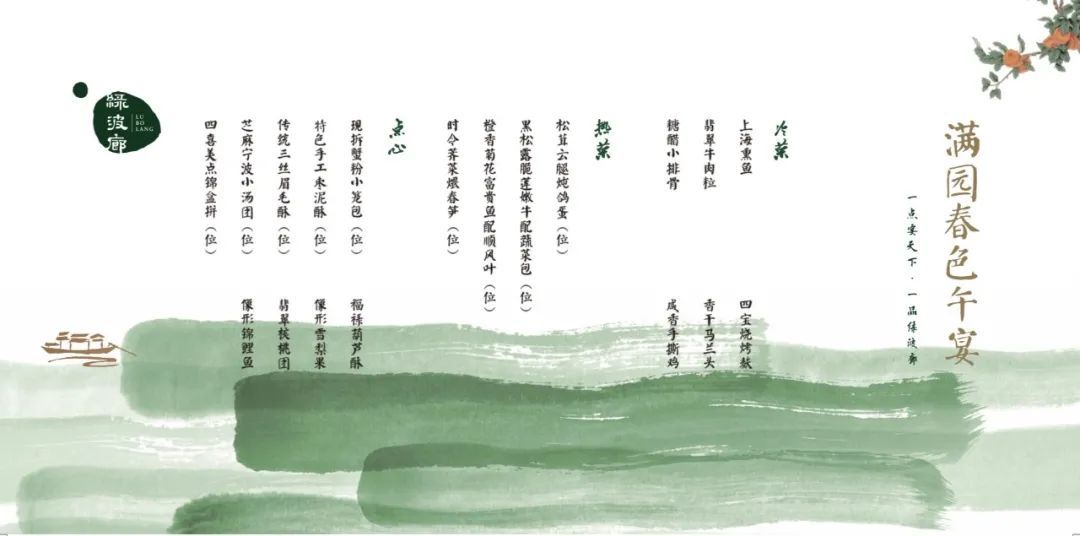 满园春色午宴
一点宴天下·一品绿波廊
冷菜
上海熏鱼
四宝烧烤麸
翡翠牛肉粒
香干马兰头
糖醋小排骨
咸香手撕鸡
热菜
松茸云腿炖鸽蛋（位）
黑松露脆莲嫩牛配蔬菜包（位）
橙香菊花富贵鱼配顺风叶（位）
时令荠菜煨春笋（位）
点心
现拆蟹粉小笼包（位）
福禄葫芦酥
特色手工枣泥酥（位）
像形雪梨果
传统三丝眉毛酥（位）
翡翠核桃团
芝麻宁波小汤团（位）
像形锦鲤鱼
四喜美点锦盒拼（位）
绿波廊
LU
BO
LANG